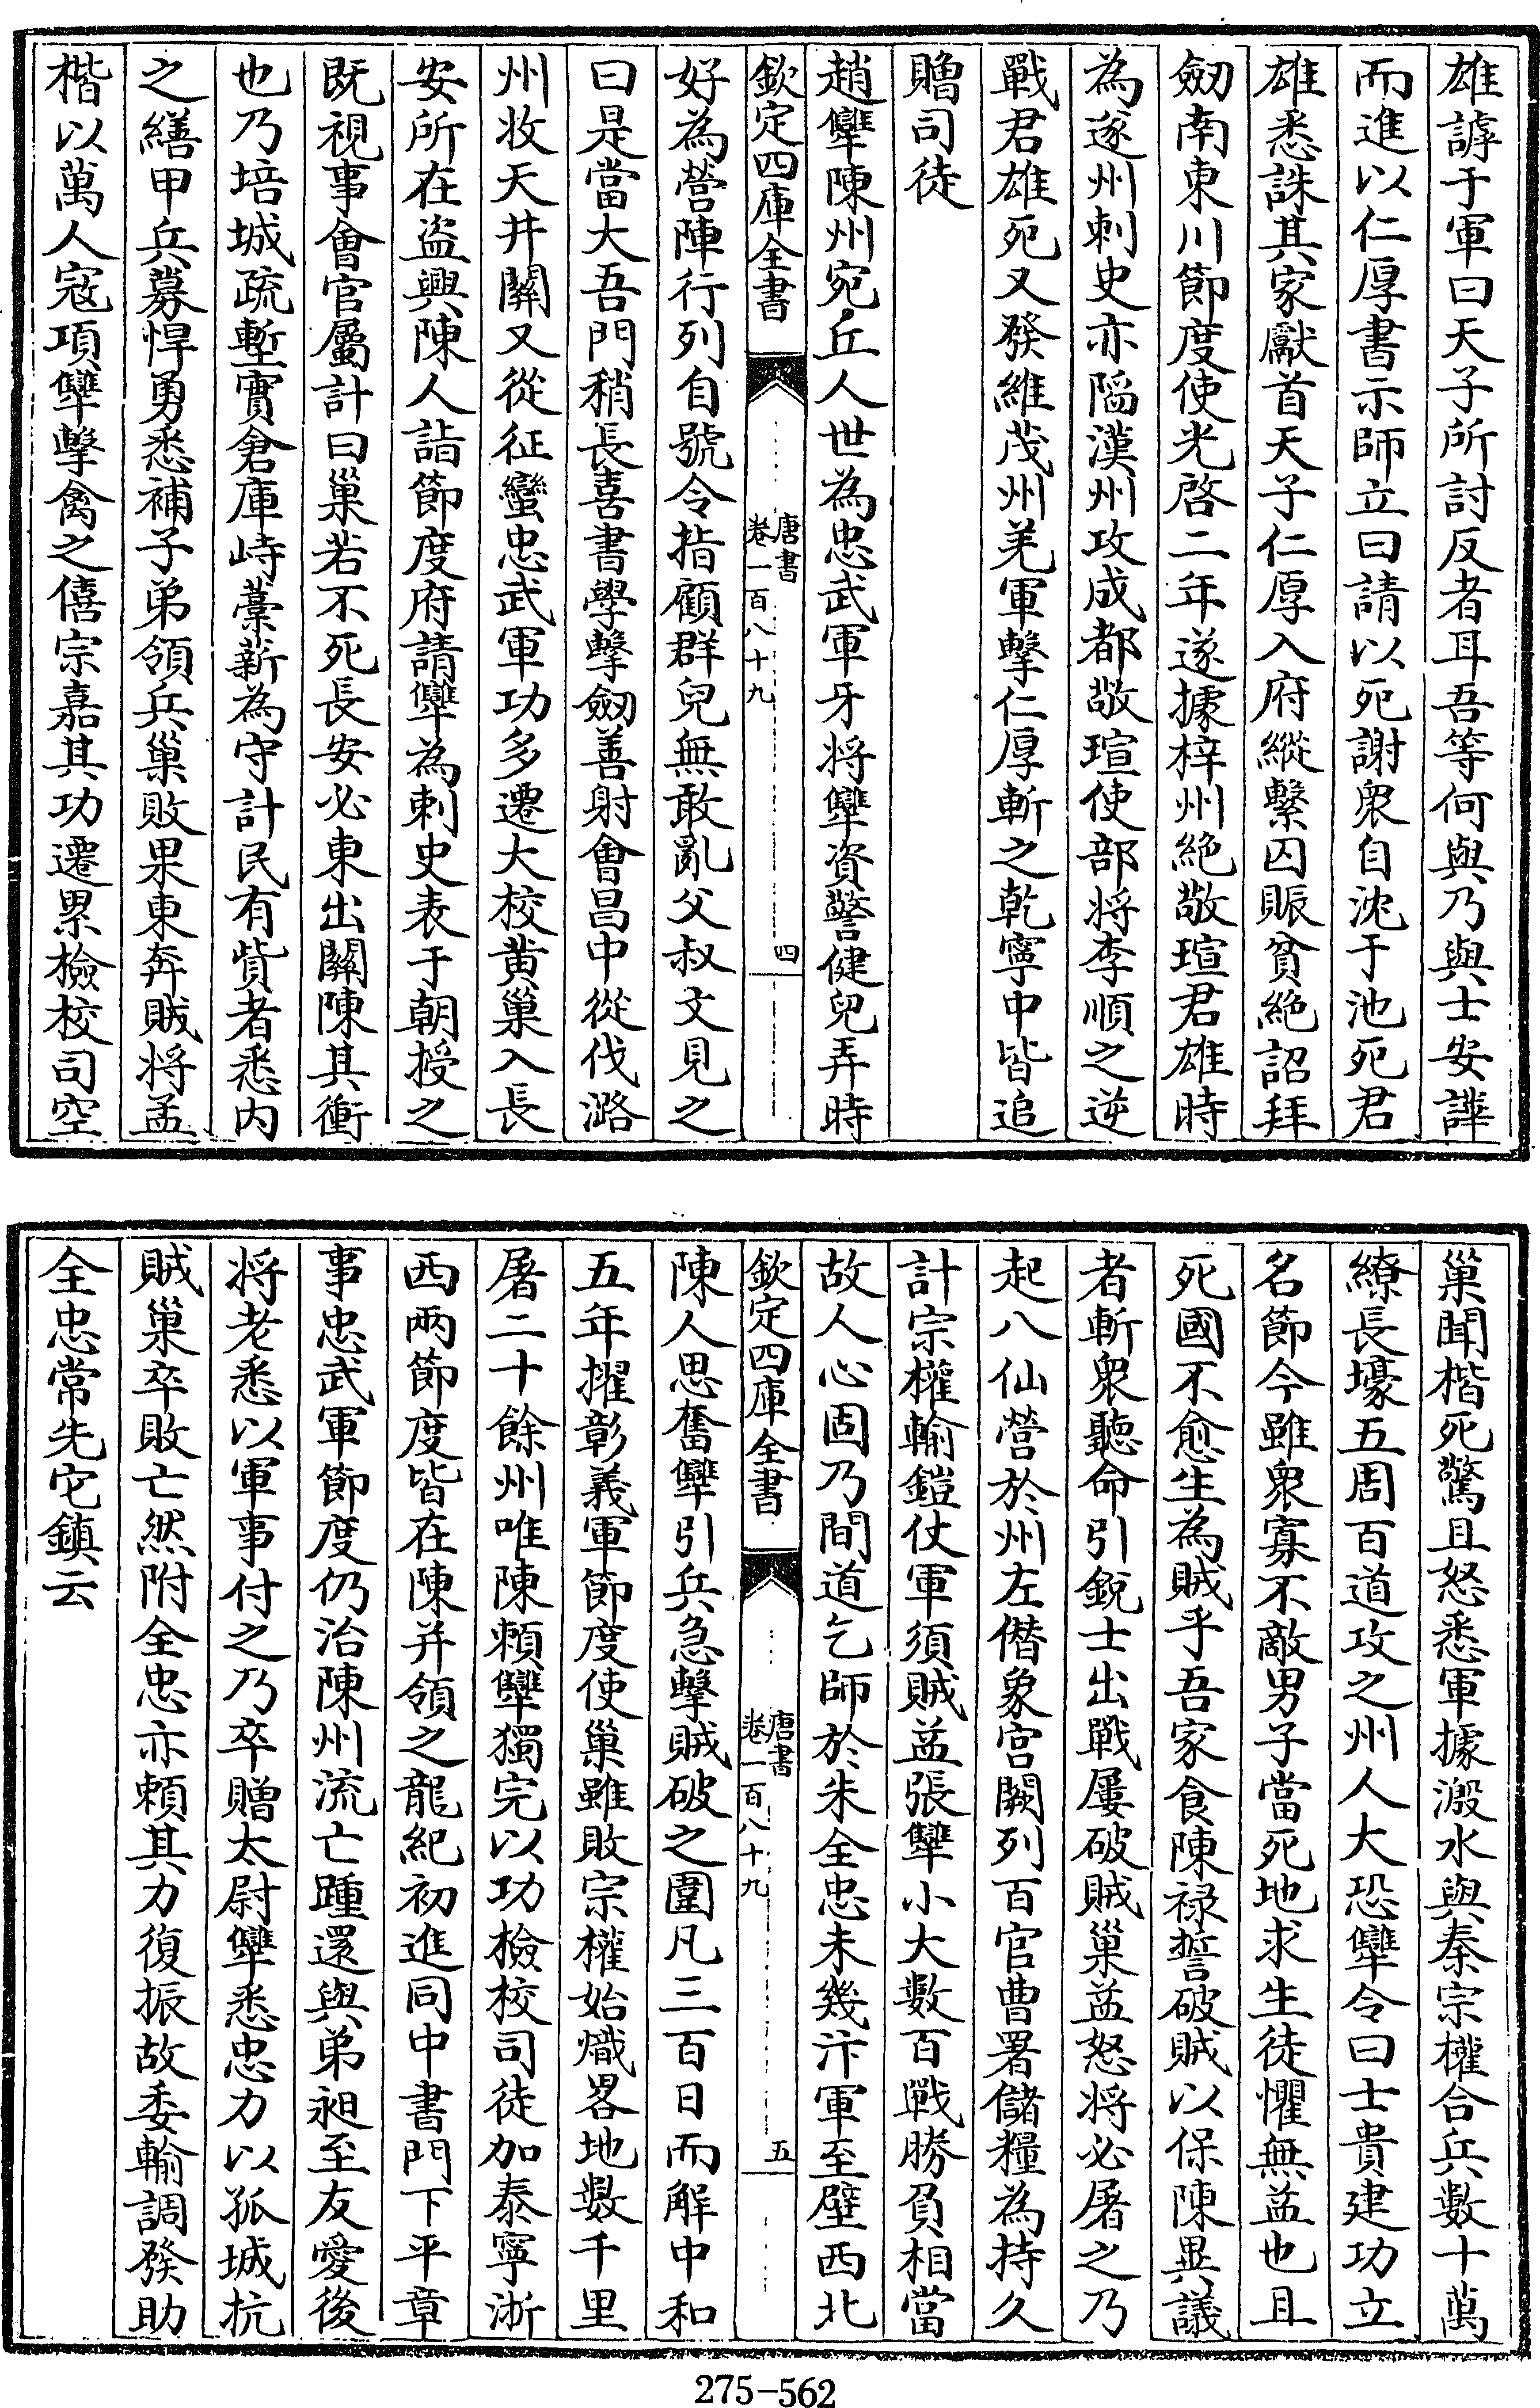 雄謼于軍曰天子所討反者耳吾等何與乃與士安譁
而進以仁厚書示師立曰請以死謝衆自沈于池死君
雄悉誅其家獻首天子仁厚入府縱繫囚賑貧絶詔拜
劒南東川節度使光啓二年遂據梓州絶敬瑄君雄時
為遂州刺史亦陷漢州攻成都敬瑄使部将李順之逆
戰君雄死又發維茂州羌軍擊仁厚斬之乾寧中皆追
贈司徒
趙犨陳州宛丘人世為忠武軍牙将犨資警健兒弄時
欽定四庫全書
唐書
卷一百八十九
四
好為營陣行列自號令指顧群兒無敢亂父叔文見之
曰是當大吾門稍長喜書學擊劒善射會昌中從伐潞
州收天井關又從征蠻忠武軍功多遷大校黄巢入長
安所在盗興陳人詣節度府請犨為刺史表于朝授之
既視事會官屬計曰巢若不死長安必東出關陳其衝
也乃培城疏塹實倉庫峙藁薪為守計民有貲者悉内
之繕甲兵募悍勇悉補子弟領兵巢敗果東奔賊将孟
楷以萬人寇項犨擊禽之僖宗嘉其功遷累檢校司空
巢聞楷死驚且怒悉軍據溵水與秦宗權合兵數十萬
繚長壕五周百道攻之州人大恐犨令曰士貴建功立
名節今雖衆寡不敵男子當死地求生徒懼無益也且
死國不愈生為賊乎吾家食陳禄誓破賊以保陳異議
者斬衆聽命引鋭士出戰屢破賊巢益怒将必屠之乃
起八仙營於州左僭象宫闕列百官曹署儲糧為持久
計宗權輸鎧仗軍須賊益張犨小大數百戰勝負相當
故人心固乃間道乞師於朱全忠未幾汴軍至壁西北
欽定四庫全書
唐書
卷一百八十九
五
陳人思奮犨引兵急擊賊破之圍凡三百日而解中和
五年擢彰義軍節度使巢雖敗宗權始熾畧地數千里
屠二十餘州唯陳賴犨獨完以功檢校司徒加泰寧浙
西兩節度皆在陳并領之龍紀初進同中書門下平章
事忠武軍節度仍治陳州流亡踵還與弟昶至友愛後
将老悉以軍事付之乃卒贈太尉犨悉忠力以孤城抗
賊巢卒敗亡然附全忠亦賴其力復振故委輸調發助
全忠常先它鎮云
275-562